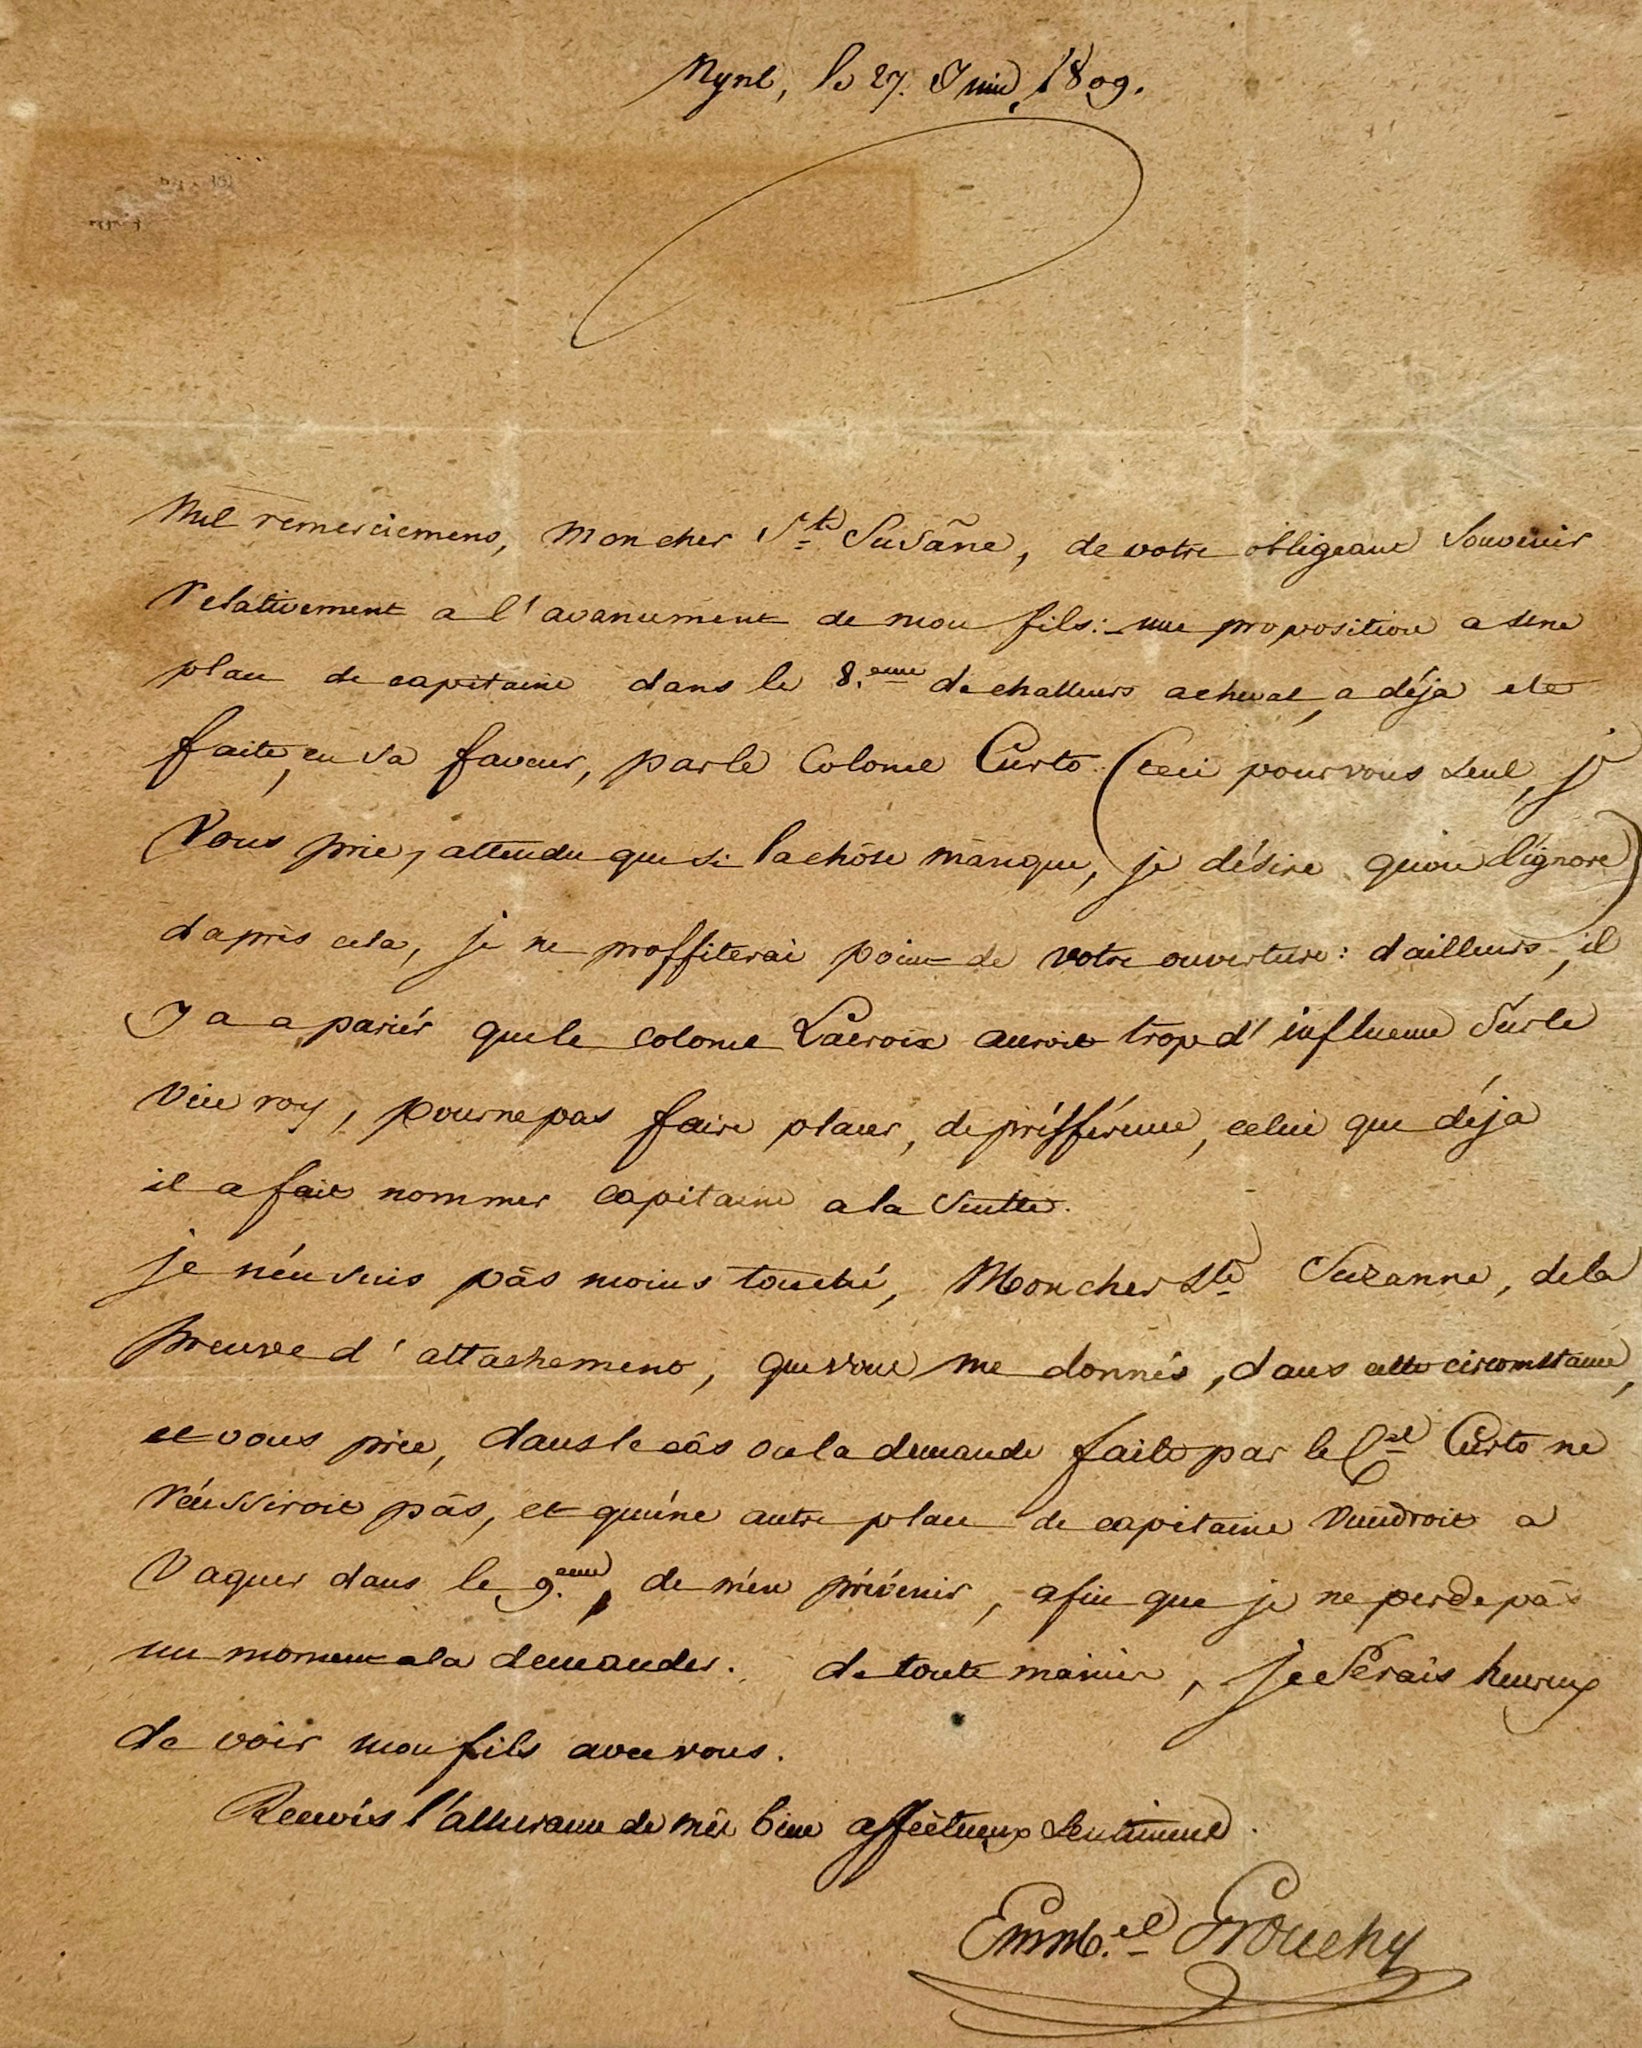 le 27. Juin 1809.
Mil remerciemens, Mon cher Ste Susãne, de votre obligeant Souvenir
relativement a l'avancement de mon fils: une proposition a une
place de capitaine dans le 8.eme de chasseurs a cheval, a déja eté
faite, en sa faveur, par le Colonel Curto (ceci pour vous seul, je
Vous prie, attendu que si la chôse manque, je désire qu'on l'ignore)
d'après cela, je ne proffiterai point de votre ouverture: d'ailleurs, il
y a a pariér que le colonel Lacroix auroit trop d'influence Sur le
Vice roy, pour ne pas faire placer, de préfférence, celui que déja
il a fait nommer capitaine a la Suitte.
je n'én suis pâs moins touché, Mon cher Ste Suzanne, de la
preuve d'attachement, que vous me donnés, dans cette circomstance,
et vous prie, dans le câs ou la demande faite par le Cel Curto ne
réussiroit pâs, et qu'une autre place de capitaine viendroit a
Vaquer dans le 9.eme, de m'én prévenir, afin que je ne perde pâs
un moment a la demander. de toute manière, je Serais heureux
de voir mon fils avec vous.
Recevés l'assurance de mes bien affectueux sentimens.
Emm.el Grouchy